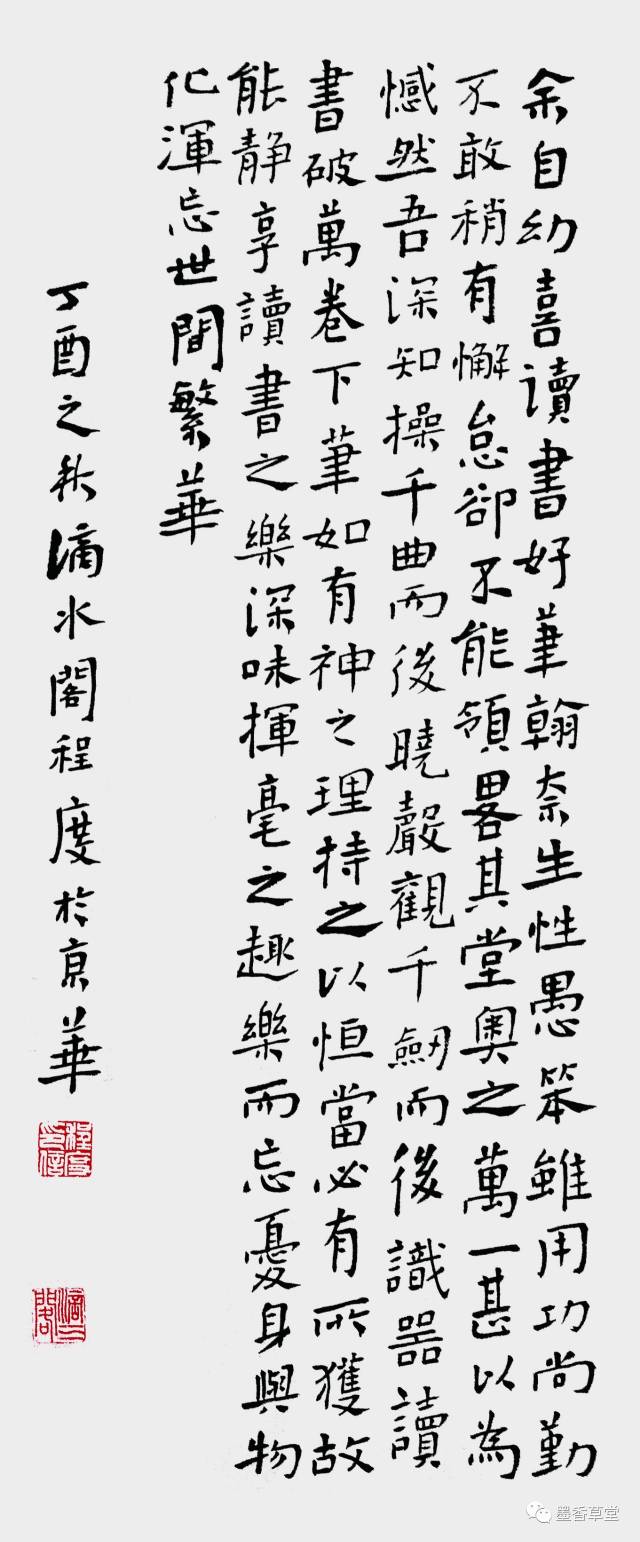 余自幼喜讀書好筆翰奈生性愚笨雖用功尚勤
不敢稍有懈怠卻不能領畧其堂奧之萬一甚以為
憾然吾深知操千曲而後曉聲觀千劒而後識器讀
書破萬卷下筆如有神之理持之以恒當必有所獲故
能静享讀書之樂深味揮毫之趣樂而忘憂身與物
化渾忘世間繁華
丁酉之秋滴水閣程度於京華
程度印信
滴水閣
墨香草堂